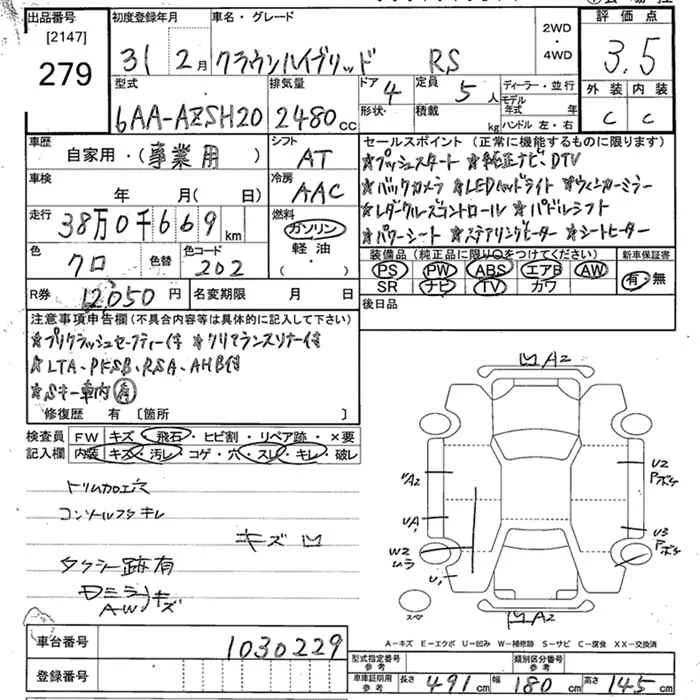 出品番号
[2147]
279
初度登録年月
31 2月
車名・グレード
クラウンハイブリッド RS
2WD
・
4WD
評価点
3.5
外装 内装
C C
型式
6AA-AZSH20
排気量
2480cc
ドア 4
形状
定員 5人
積載 kg
ディーラー・並行
モデル年式 年
ハンドル 左・右
車歴
自家用・(事業用)
シフト
AT
車検
年 月( 日)
冷房
AAC
走行
38万0千669km
燃料
ガソリン
軽油・
( ・ )
色
クロ
色替
色コード
202
R券 12,050円
名変期限 月 日
セールスポイント(正常に機能するものに限ります)
★プッシュスタート ★純正ナビ、DTV
★バックカメラ ★LEDヘッドライト ★ウィンカーミラー
★レダークルーズコントロール ★パドルシフト
★パワーシート ★ステアリングヒーター ★シートヒーター
装備品(純正品に限り○をつけてください)
PS PW ABS エアB AW
SR ナビ TV カワ
新車保証書
有・無
後日品
注意事項申告欄(不具合内容等は具体的に記入して下さい)
★プリクラッシュセーフティー付 ★クリアランスソナー付
★LTA、PKSB、RSA、AHB付
★Sキー車内有
修復歴 有 〔箇所 〕
検査員記入欄
FW キズ・飛石・ヒビ割・リペア跡・×要
内装 キズ・汚レ・コゲ・穴・スレ・キレ・破レ
トリム加工穴
コンソールフタキレ
キズ凹
タクシー跡有
AWキズ
A2
UA2
UA1
W2
U2
Pボケ
U3
Pボケ
スペア
A2
A-キズ E-エクボ U-凹み W-補修跡 S-サビ C-腐食 XX-交換済
車台番号 1030229
登録番号
型式指定番号 参考
類別区分番号 参考
車庫証明用 参考
長さ 491cm 幅 180cm 高さ 145cm